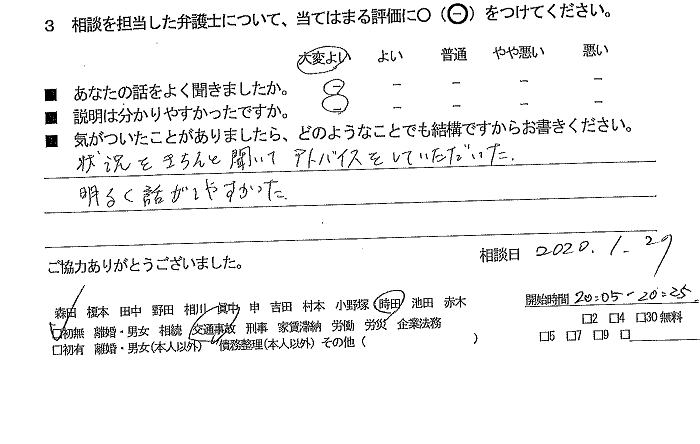 3 相談を担当した弁護士について、当てはまる評価に○（㊀）をつけてください。
大変よい よい 普通 やや悪い 悪い
■ あなたの話をよく聞きましたか。 － － － － －
■ 説明は分かりやすかったですか。 － － － － －
■ 気がついたことがありましたら、どのようなことでも結構ですからお書きください。
状況をきちんと聞いてアドバイスをしていただいた.
明るく話がしやすかった.
ご協力ありがとうございました。
相談日 2020.1.29
森田 榎本 田中 野田 相川 眞中 申 吉田 村本 小野塚 時田 池田 赤木
開始時間 20:05-20:25
□初無 離婚・男女 相続 交通事故 刑事 家賃滞納 労働 労災 企業法務
□2 □4 □30無料
□初有 離婚・男女(本人以外) 債務整理(本人以外) その他（ ）
□5 □7 □9 □